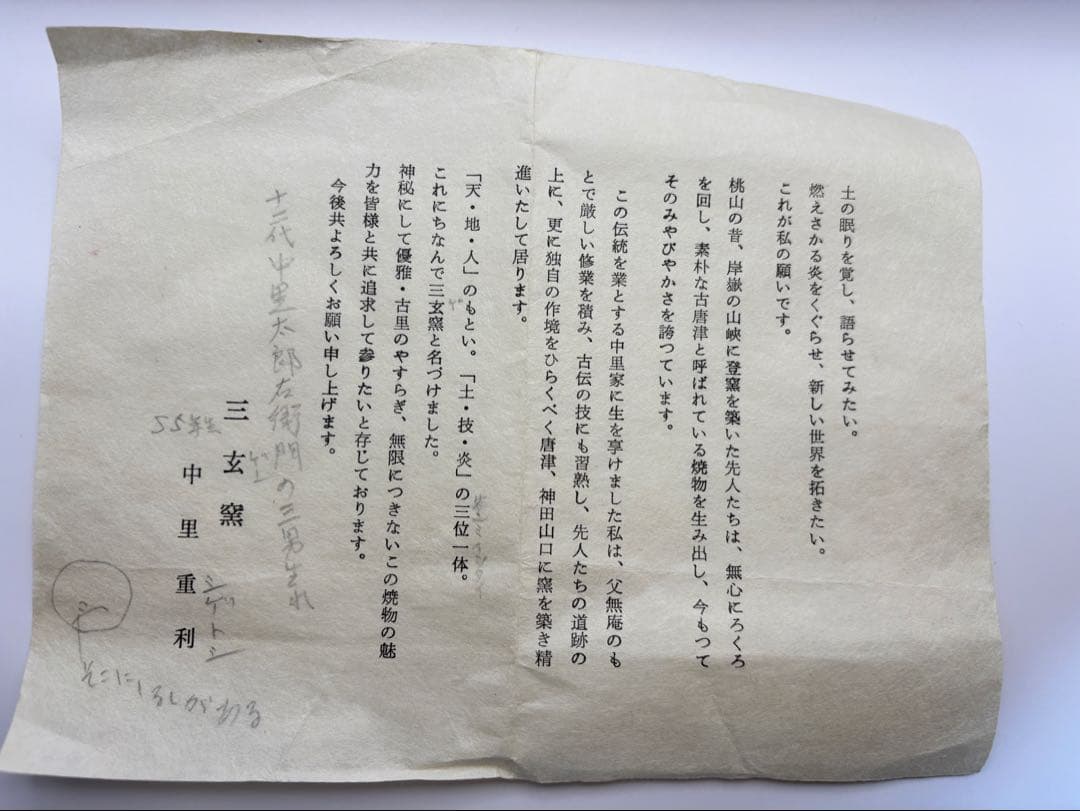 土の眠りを覚し、語らせてみたい。
燃えさかる炎をくぐらせ、新しい世界を拓きたい。
これが私の願いです。
桃山の昔、岸嶽の山峡に登窯を築いた先人たちは、無心にろくろ
を回し、素朴な古唐津と呼ばれている焼物を生み出し、今もつて
そのみやびやかさを誇つています。
この伝統を業とする中里家に生を享けました私は、父無庵のも
とで厳しい修業を積み、古伝の技にも習熟し、先人たちの道跡の
上に、更に独自の作境をひらくべく唐津、神田山口に窯を築き精
進いたして居ります。
「天・地・人」のもとい。「土・技・炎」の三位一体。
これにちなんで三玄窯と名づけました。
ゲ
神秘にして優雅・古里のやすらぎ、無限につきないこの焼物の魅
力を皆様と共に追求して参りたいと存じております。
今後共よろしくお願い申し上げます。
十二代中里太郎右衛門の三男生れ
三玄窯
ゲン
55年生
中里重利
シゲトシ
シ
そこにしるしがある